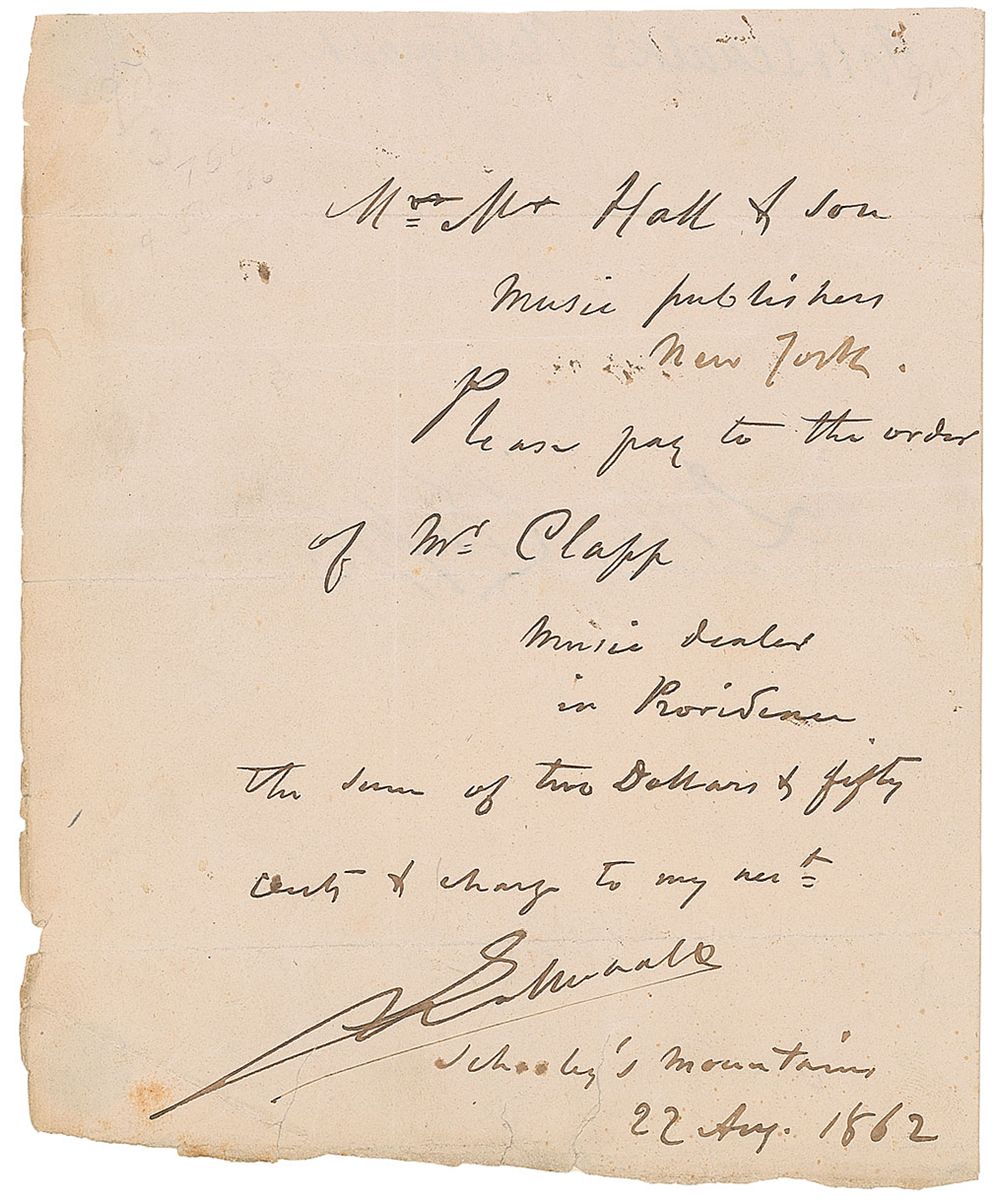 Mrrs Mr Hall & Son
Music publishers
New York.
Please pay to the order
of Mr Clapp
Music dealer
in Providence
the sum of two Dollars & fifty
cents & charge to my acct
Gottschalk
Schooley's Mountains
22 Aug. 1862